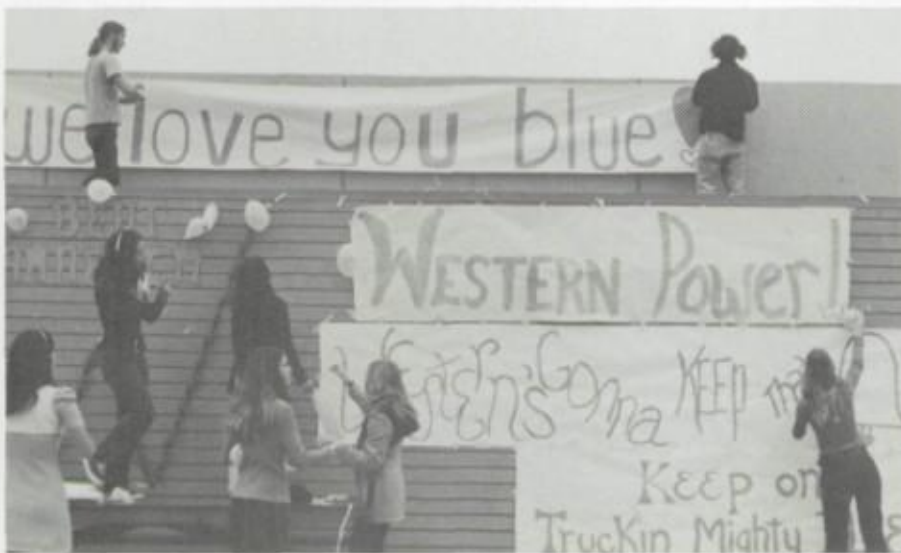 we love you blue
WESTERN Power!
Western's Gonna KEEP
Keep on
Truckin Mighty